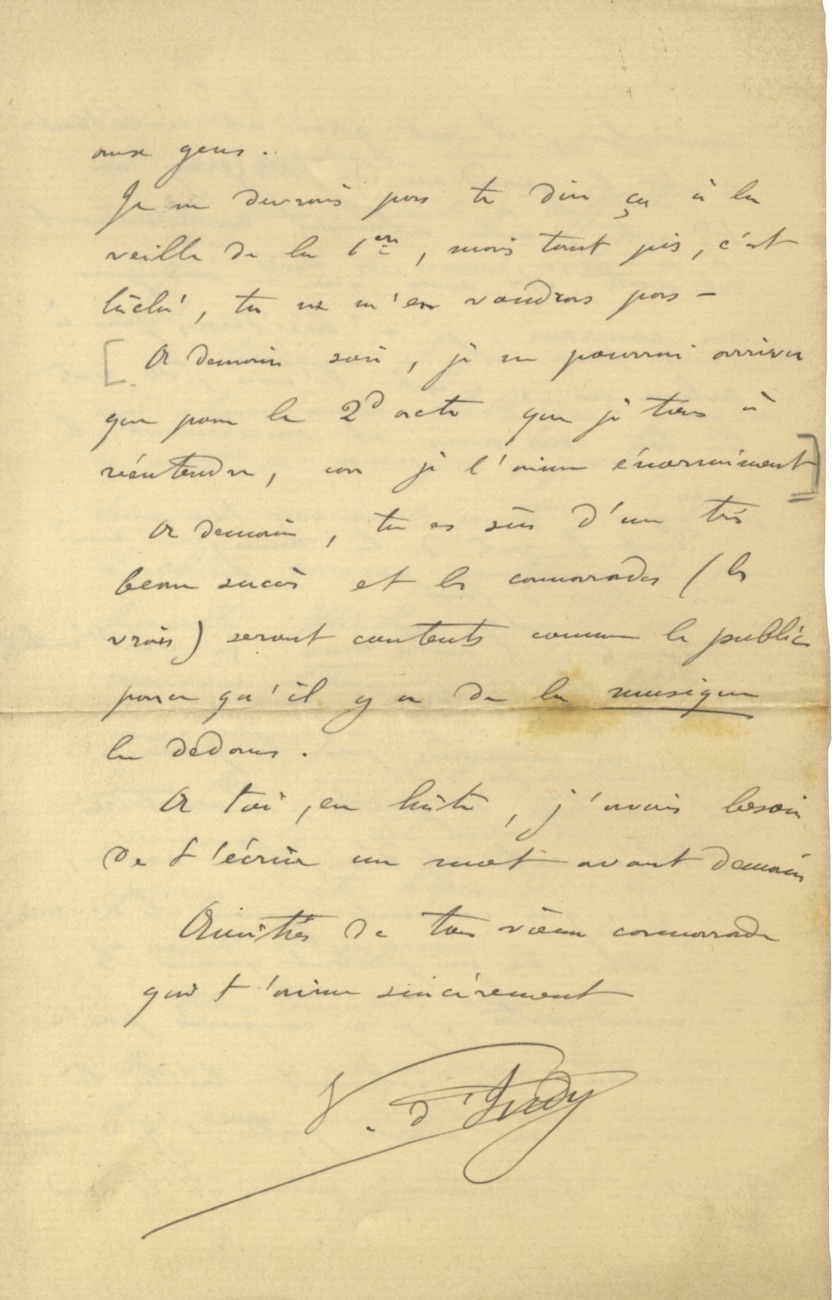 aux gens.
Je ne devrais pas te dire ça à la
veille de la 1ère, mais tant pis, c'est
lâché, tu ne m'en voudras pas –
[ A demain soir, je ne pourrai arriver
que pour le 2d acte que je tiens à
réentendre, car je l'aime énormément ]
A demain, tu es sûr d'un très
beau succès et les camarades (les
vrais) seront contents comme le public
parce qu'il y a de la musique
là dedans.
A toi, en hâte, j'avais besoin
de t'écrire un mot avant demain
Amitiés de ton vieux camarade
qui t'aime sincèrement
V. d'Indy